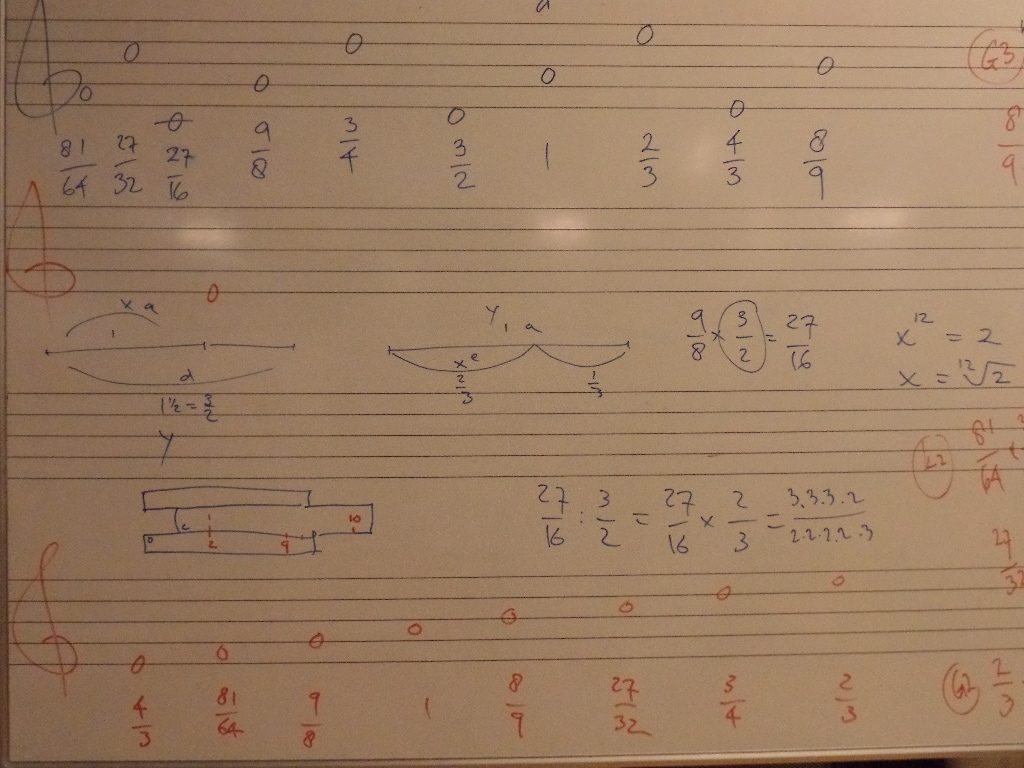 G3
81/64 27/32 27/16 9/8 3/4 3/2 1 2/3 4/3 8/9 8/9
x a
1
d
1½ = 3/2
y
y, a
x e
2/3 1/3
9/8 x 3/2 = 27/16
x¹² = 2
x = ¹²√2
81/64
10
1
2 9
27/16 : 3/2 = 27/16 x 2/3 = 3.3.3.2/2.2.2.2.3
27/32
4/3 81/64 9/8 1 8/9 27/32 3/4 2/3
G2 2/3